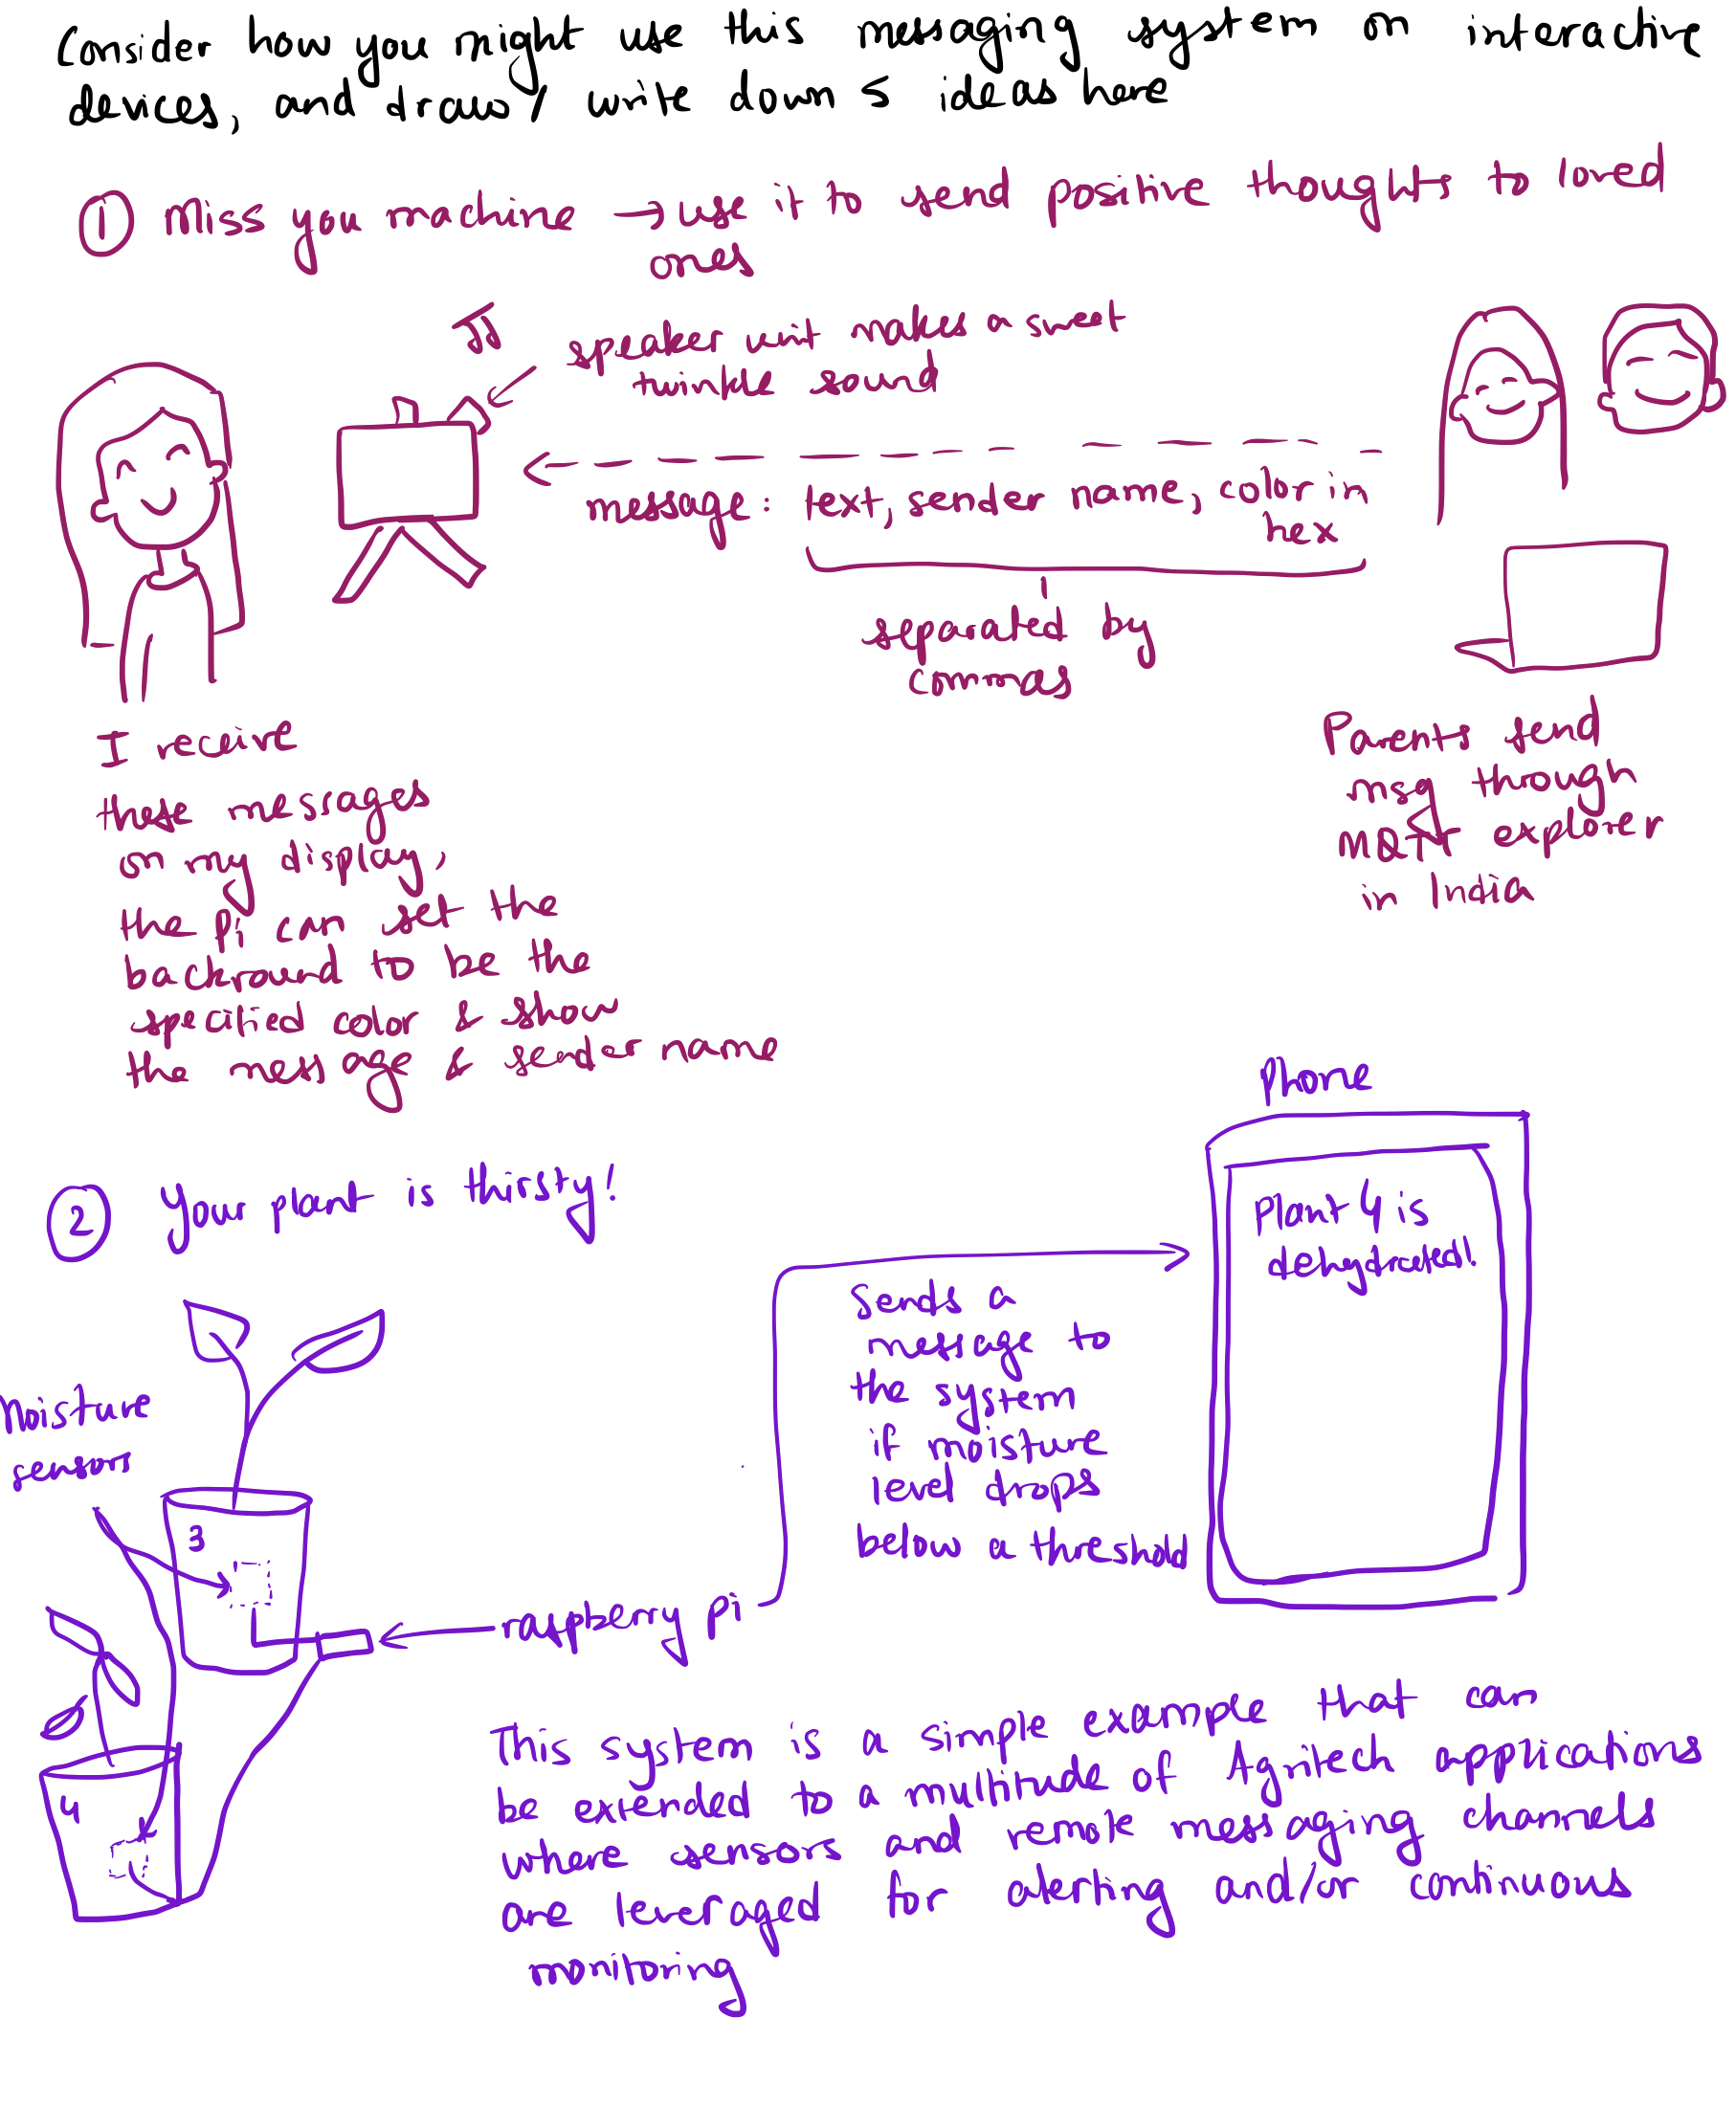 Consider how you might use this messaging system on interactive
devices, and draw/ write down 5 ideas here
1 Miss you machine → use it to send positive thoughts to loved
ones
speaker unit makes a sweet
twinkle sound
message: text, sender name, color in
hex
separated by
commas
I receive
these messages
on my display,
the Pi can set the
backround to be the
specified color & show
the message & sender name
Parents send
msg through
MQTT explorer
in India
2 Your plant is thirsty!
Phone
Plant 4 is
dehydrated!
Sends a
message to
the system
if moisture
level drops
below a threshold
moisture
sensors
3
raspberry pi
4
This system is a simple example that can
be extended to a multitude of Agritech applications
where sensors and remote messaging channels
are leveraged for alerting and/or continuous
monitoring